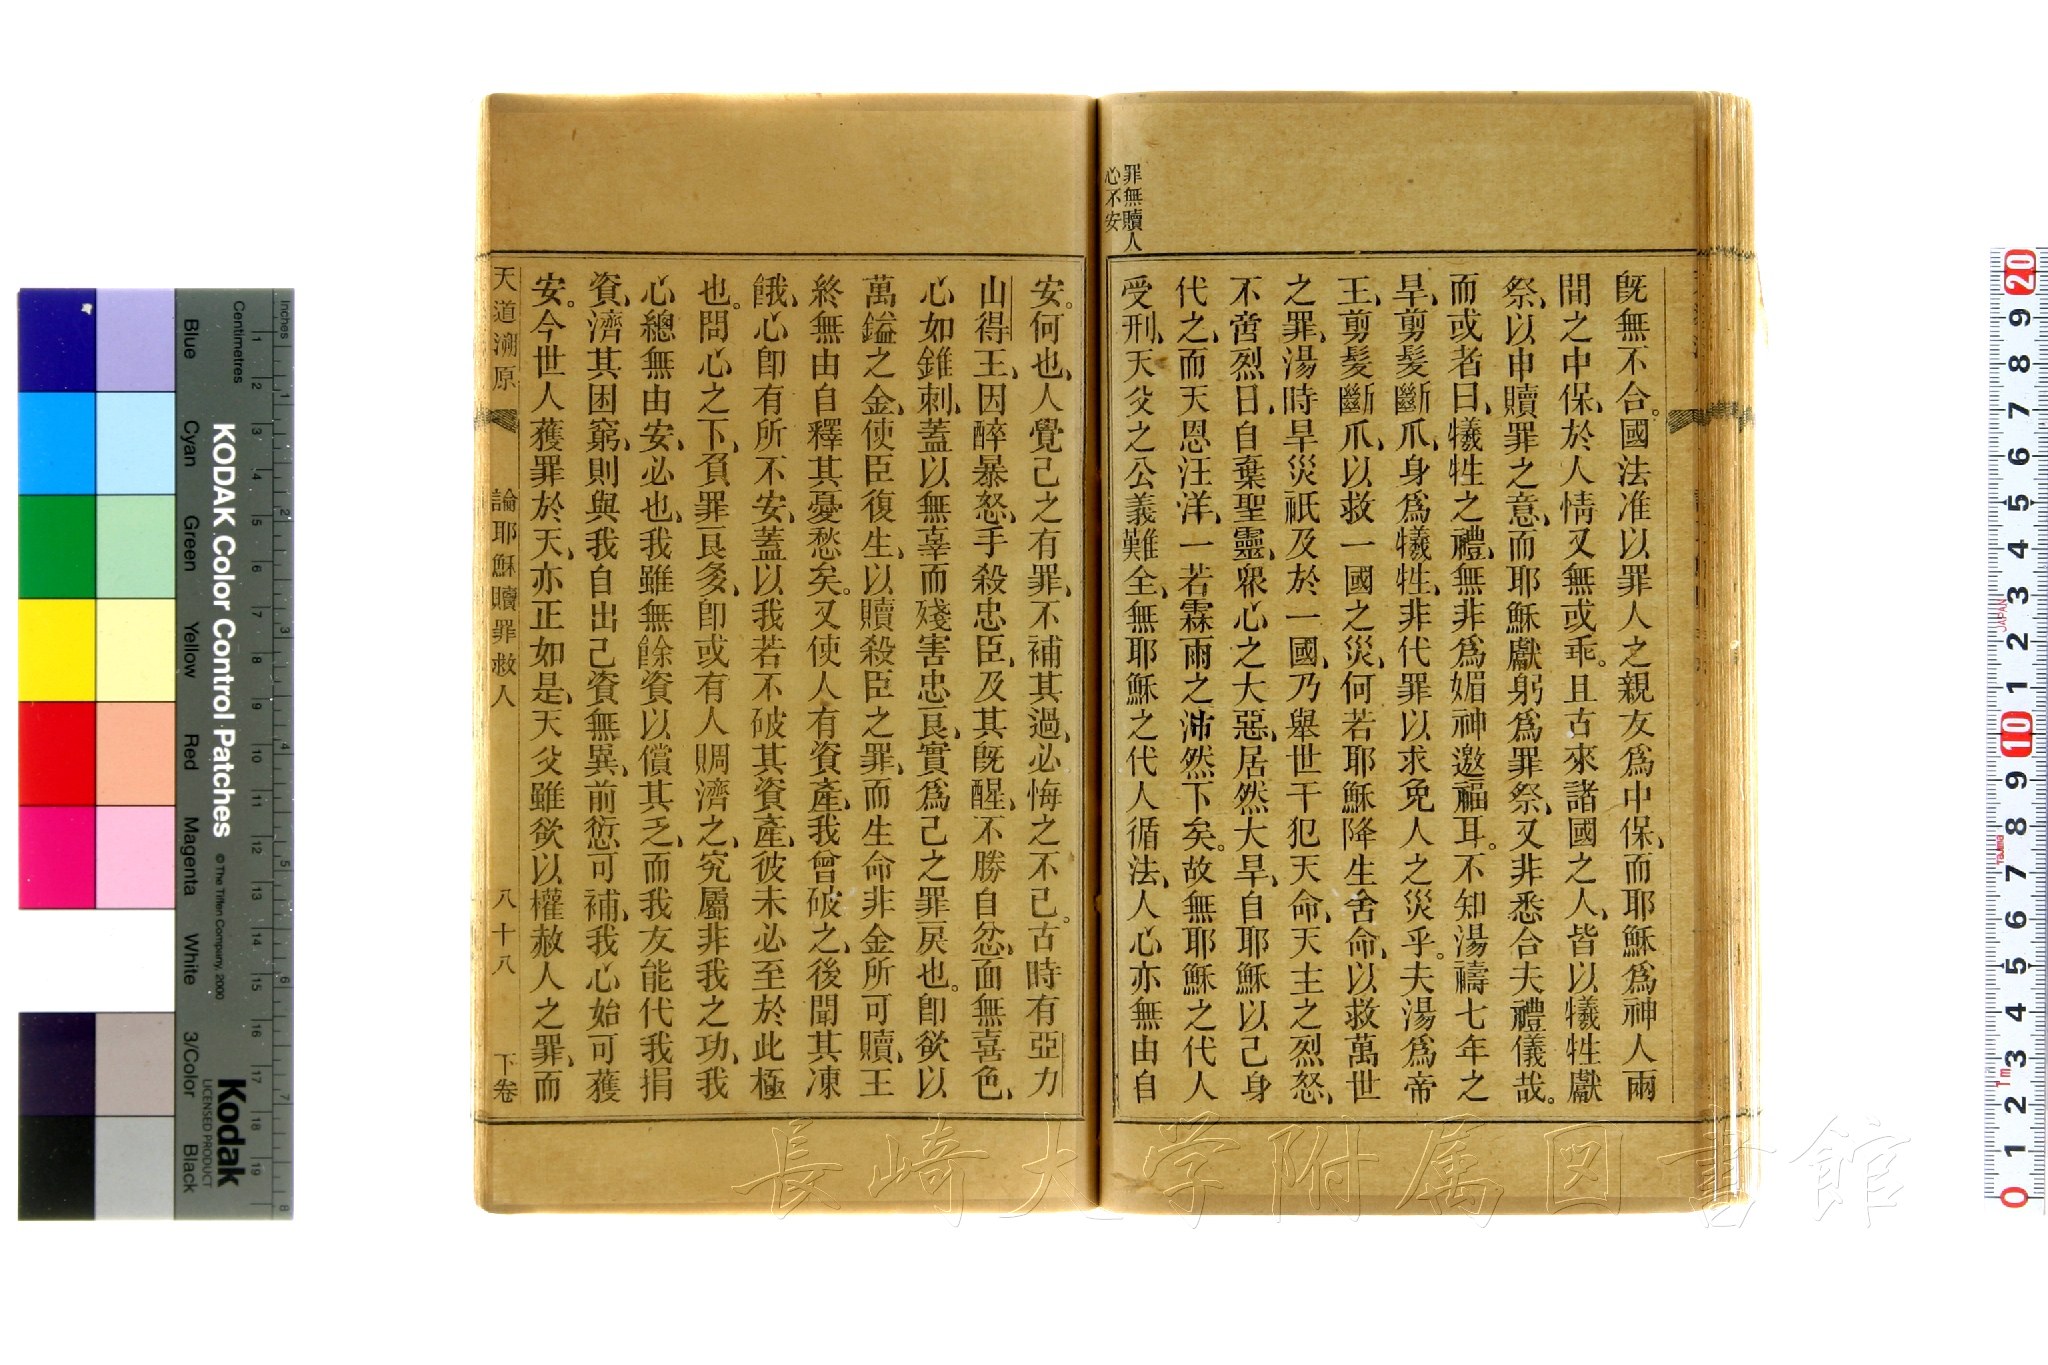 罪無贖人
心不安
既無不合。國法准以罪人之親友爲中保、而耶穌爲神人兩
間之中保、於人情又無或乖。且古來諸國之人、皆以犧牲獻
祭、以申贖罪之意、而耶穌獻躬爲罪祭、又非悉合夫禮儀哉。
而或者曰、犧牲之禮、無非爲媚神邀福耳。不知湯禱七年之
旱、剪髮斷爪、身爲犧牲、非代罪以求免人之災乎。夫湯爲帝
王、剪髮斷爪、以救一國之災、何若耶穌降生舍命、以救萬世
之罪、湯時旱災祇及於一國、乃舉世干犯天命、天主之烈怒、
不啻烈日、自棄聖靈、衆心之大惡、居然大旱、自耶穌以己身
代之、而天恩汪洋、一若霖雨之沛然下矣。故無耶穌之代人
受刑、天父之公義難全、無耶穌之代人循法、人心亦無由自
安。何也、人覺己之有罪、不補其過、必悔之不已。古時有亞力
山得王、因醉暴怒、手殺忠臣、及其既醒、不勝自忿、面無喜色、
心如錐刺、蓋以無辜而殘害忠良、實爲己之罪戾也。卽欲以
萬鎰之金、使臣復生、以贖殺臣之罪、而生命非金所可贖、王
終無由自釋其憂愁矣。又使人有資產、我曾破之、後聞其凍
餓、心卽有所不安、蓋以我若不破其資產、彼未必至於此極
也。問心之下、負罪良多、卽或有人賙濟之、究屬非我之功、我
心總無由安、必也、我雖無餘資以償其乏、而我友能代我捐
資、濟其困窮、則與我自出己資無異、前愆可補、我心始可獲
安。今世人獲罪於天、亦正如是、天父雖欲以權赦人之罪、而
天道溯原
論耶穌贖罪救人
八十八
下卷
長崎大学附属図書館
Inches
Centimetres
1 2 3 4 5 6 7 8
1 2 3 4 5 6 7 8 9 10 11 12 13 14 15 16 17 18 19
Blue
Cyan
Green
Yellow
Red
Magenta
White
3/Color
Black
KODAK Color Control Patches
© The Tiffen Company, 2000
Kodak
LICENSED PRODUCT
20 9 8 7 6 5 4 3 2 1 10 9 8 7 6 5 4 3 2 1 0
JAPAN